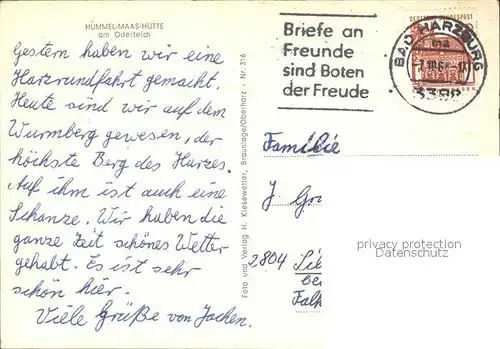 HUMMEL-MAAS-HÜTTE
am Oderteich
Gestern haben wir eine
Harzrundfahrt gemacht.
Heute sind wir auf dem
Wurmberg gewesen, der
höchste Berg des Harzes.
Auf ihm ist auch eine
Schanze. Wir haben die
ganze Zeit schönes Wetter
gehabt. Es ist sehr
schön hier.
Viele Grüße von Jochen.
Foto und Verlag H. Kiesewetter, Braunlage/Oberharz - Nr. 316
Briefe an
Freunde
sind Boten
der Freude
DEUTSCHE BUNDESPOST
BAD HARZBURG
3388
Familie
J
privacy protection
Datenschutz
2804